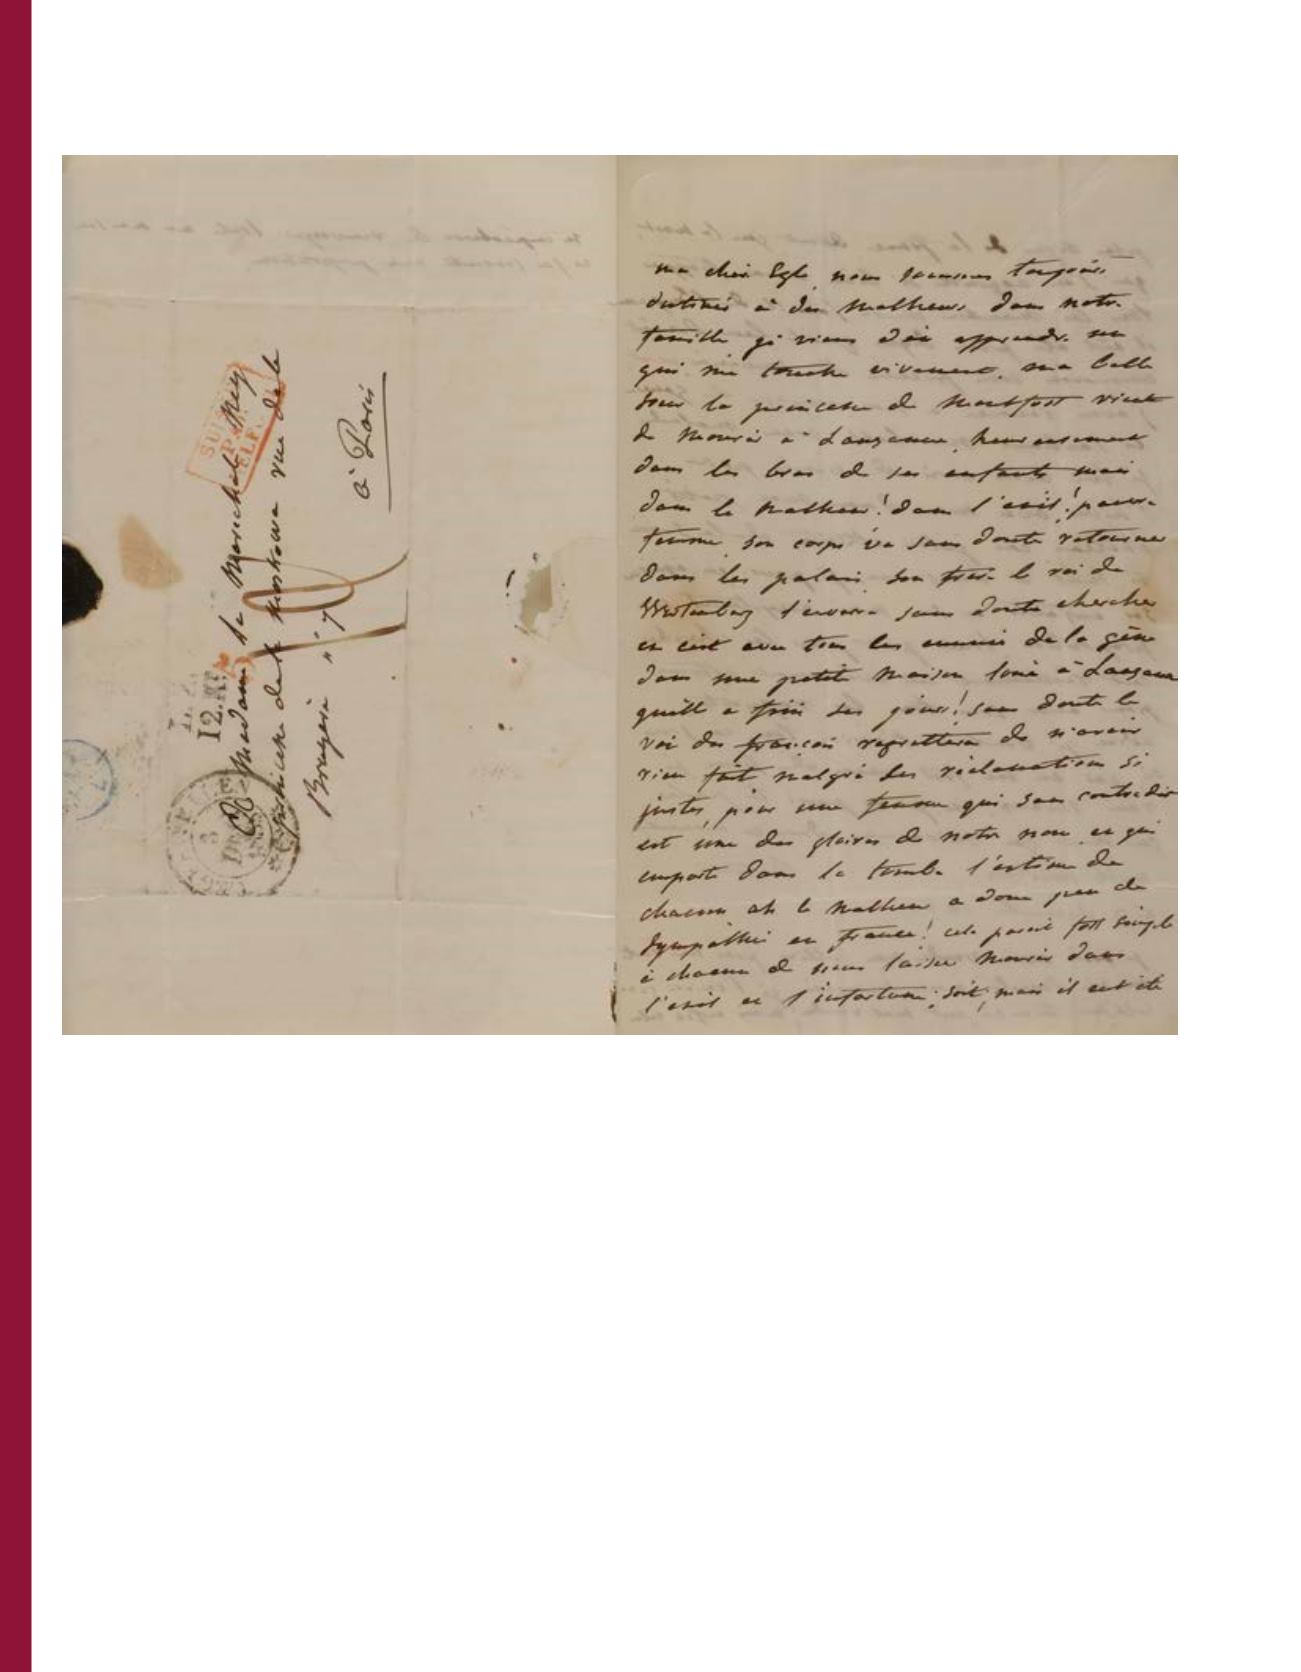 Madame la Marechale Ney
princesse de la Moskowa rue de la
à Paris
ma cher Egle, nous sommes toujours
destinés à des malheurs dans notre
famille je viens d'en apprendre un
qui me touche vivement, ma belle
sœur la princesse de Montfort vient
de mourir à Lausanne, heureusement
dans les bras de ses enfants mais
dans le malheur! dans l'exil! pauvre
femme, son corps va sans doute retourner
dans les palais son frere le roi de
l'enverra sans doute chercher
et c'est avec tous les ennuis de la gêne
dans une petite maison loué à Lausanne
quelle a fini ses jours! sans doute le
roi des français regrettera de n'avoir
rien fait malgré des réclamations si
justes, pour une femme qui sans contredit
est une des gloires de notre nom et qui
emporte dans la tombe l'estime de
chacun ah le malheur a donc peu de
sympathie en france! cela parait fort simple
à chacun de nous laisser mourir dans
l'exil et l'infortune; soit; mais il eut été